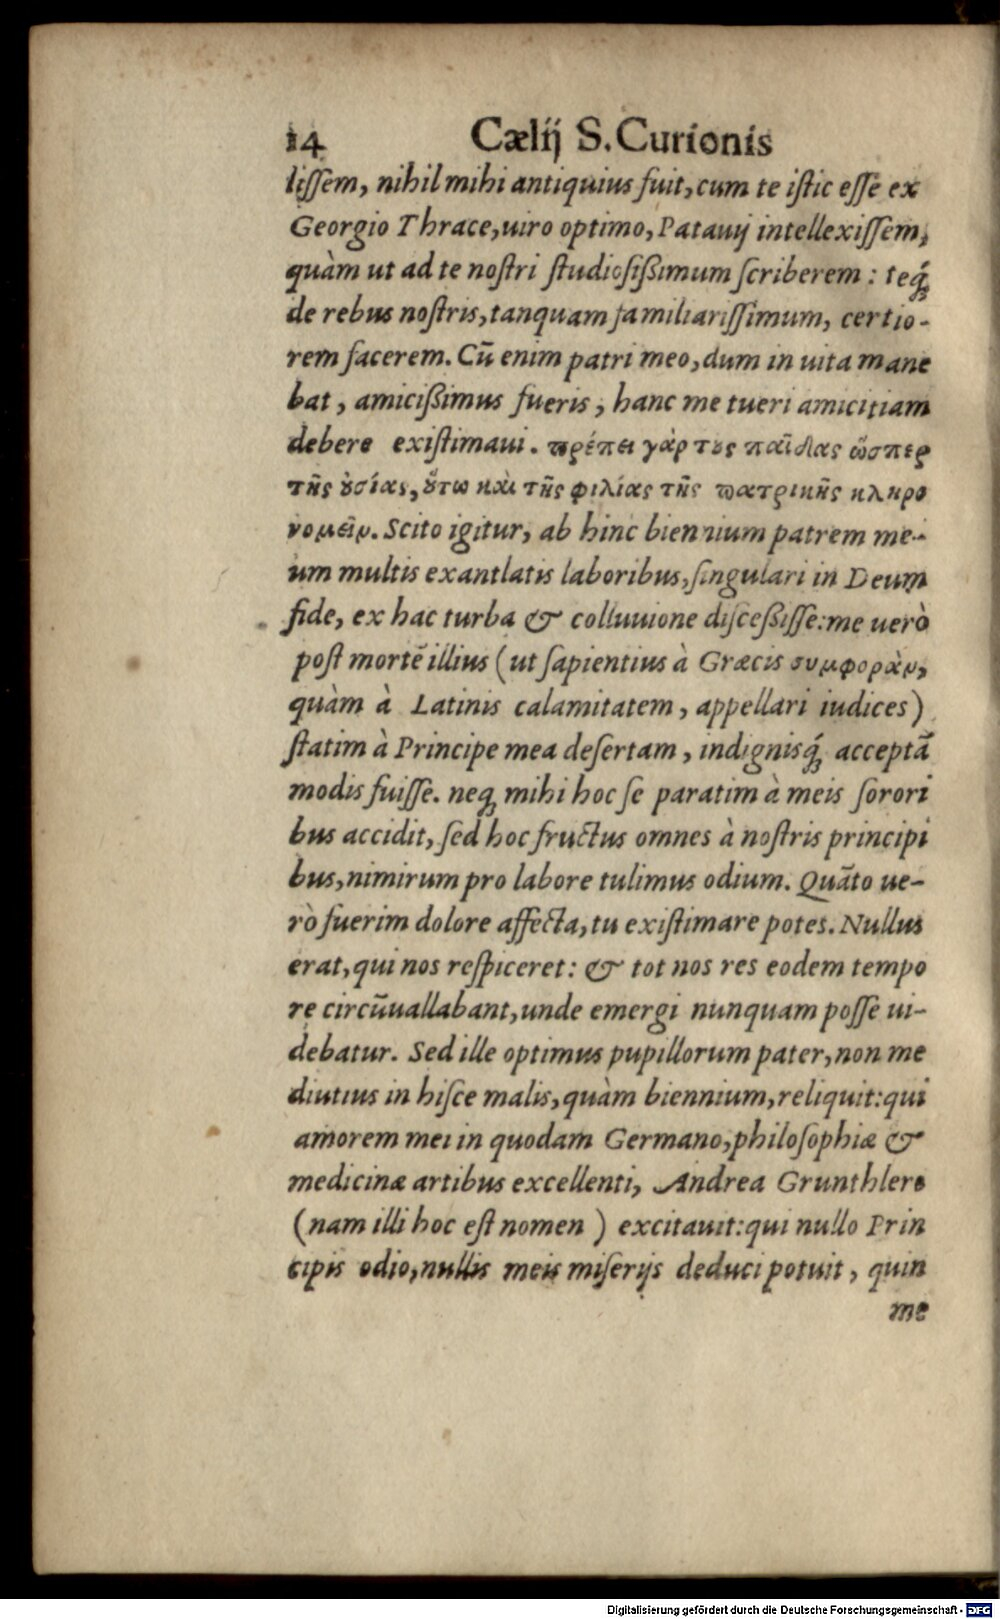 14 Cælij S. Curionis
lissem, nihil mihi antiquius fuit, cum te istic esse ex
Georgio Thrace, uiro optimo, Patauij intellexissem,
quàm ut ad te nostri studiosißimum scriberem: teq́;
de rebus nostris, tanquam familiarissimum, certio-
rem facerem. Cū enim patri meo, dum in uita mane
bat, amicißimus fueris, hanc me tueri amicitiam
debere existimaui. πρέπει γὰρ τȣς παῖδας ὥσπερ
τῆς ȣσίας, ȣ̔́τω καὶ τῆς φιλίας τῆς πατρικῆς κληρο
νομεῖν. Scito igitur, ab hinc biennium patrem me-
um multis exantlatis laboribus, singulari in Deum
fide, ex hac turba & colluuione disceßisse: me uerò
post mortē illius (ut sapientius à Græcis συμφορὰν,
quàm à Latinis calamitatem, appellari iudices)
statim à Principe mea desertam, indignisq́; acceptā
modis fuisse. neq; mihi hoc se paratim à meis sorori
bus accidit, sed hoc fructus omnes à nostris principi
bus, nimirum pro labore tulimus odium. Quāto ue-
rò fuerim dolore affecta, tu existimare potes. Nullus
erat, qui nos respiceret: & tot nos res eodem tempo
re circūuallabant, unde emergi nunquam posse ui-
debatur. Sed ille optimus pupillorum pater, non me
diutius in hisce malis, quàm biennium, reliquit: qui
amorem mei in quodam Germano, philosophiæ &
medicinæ artibus excellenti, Andrea Grunthlero
(nam illi hoc est nomen) excitauit: qui nullo Prin
cipis odio, nullis meis miserijs deduci potuit, quin
me
Digitalisierung gefördert durch die Deutsche Forschungsgemeinschaft - DFG